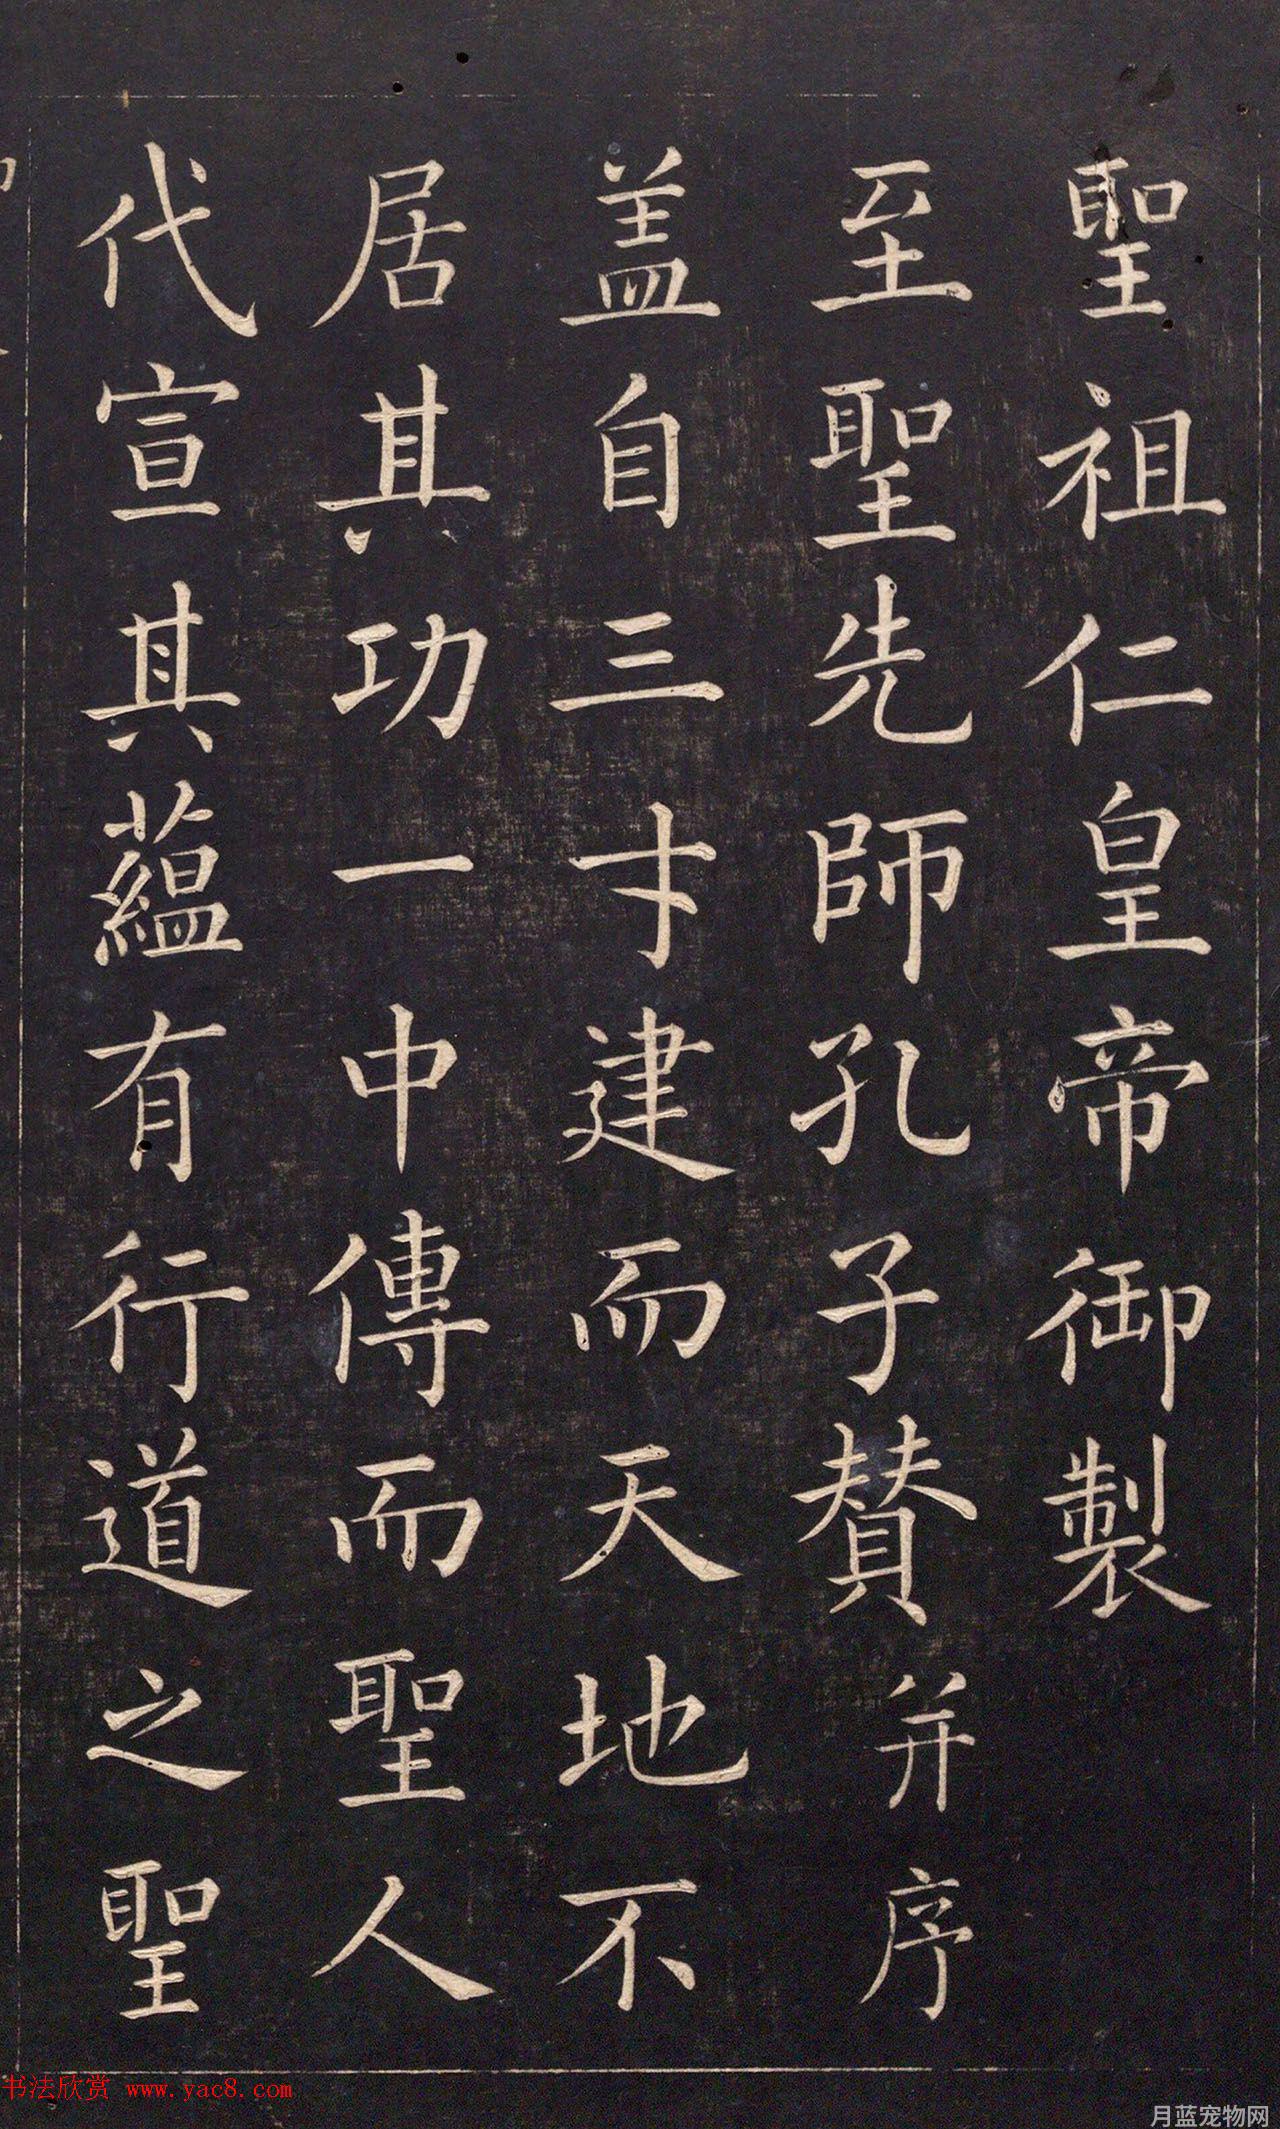 聖祖仁皇帝御製
至聖先師孔子賛并序
盖自三才建而天地不
居其功一中傳而聖人
代宣其蘊有行道之聖
书法欣赏 www.yac8.com
月蓝宠物网